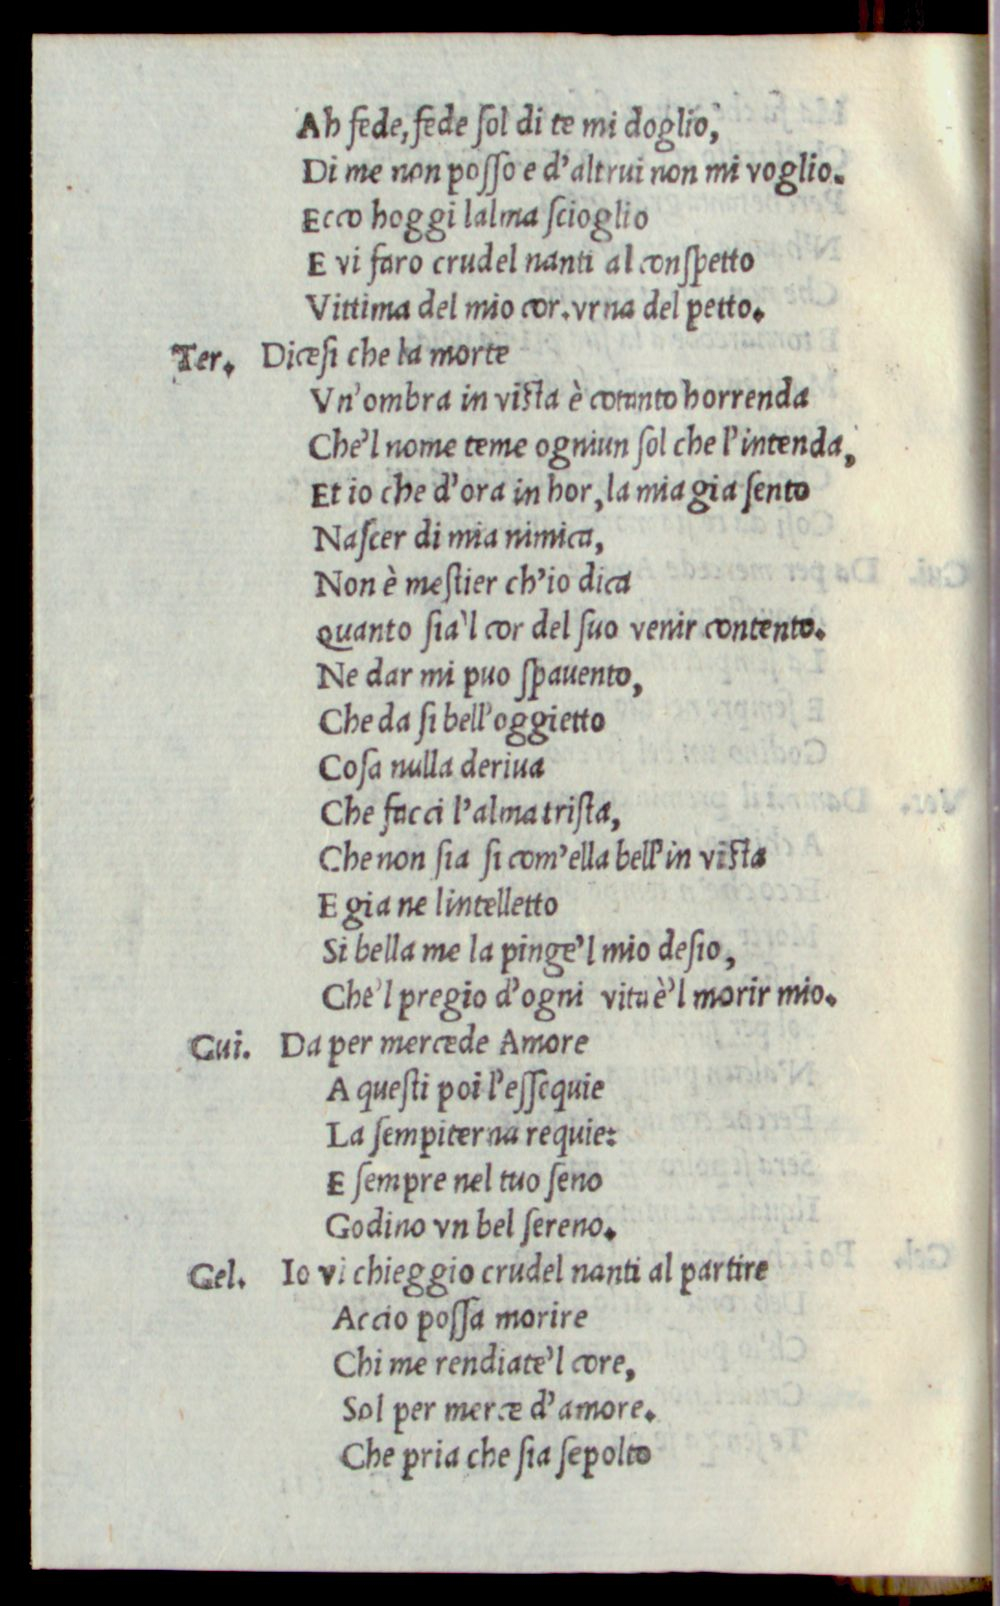 Ah fede, fede ſol di te mi doglio,
Di me non poſſo e d'altrui non mi voglio.
Ecco hoggi lalma ſcioglio
E vi faro crudel nanti al conſpetto
Vittima del mio cor. vrna del petto.
Ter. Diceſi che la morte
Vn'ombra in viſta è cotanto horrenda
Che'l nome teme ogniun ſol che l'intenda,
Et io che d'ora in hor, la mia gia ſento
Naſcer di mia nimica,
Non è meſtier ch'io dica
Quanto ſia'l cor del ſuo venir contento.
Ne dar mi puo ſpauento,
Che da ſi bell'oggietto
Coſa nulla deriua
Che facci l'alma triſta,
Che non ſia ſi com'ella bell'in viſta
E gia ne lintelletto
Si bella me la pinge'l mio deſio,
Che'l pregio d'ogni vita è'l morir mio.
Gui. Da per mercede Amore
A queſti poi l'eſſequie
La ſempiterna requie:
E ſempre nel tuo ſeno
Godino vn bel ſereno.
Gel. Io vi chieggio crudel nanti al partire
Accio poſſa morire
Chi me rendiate'l core,
Sol per merce d'amore.
Che pria che ſia ſepolto